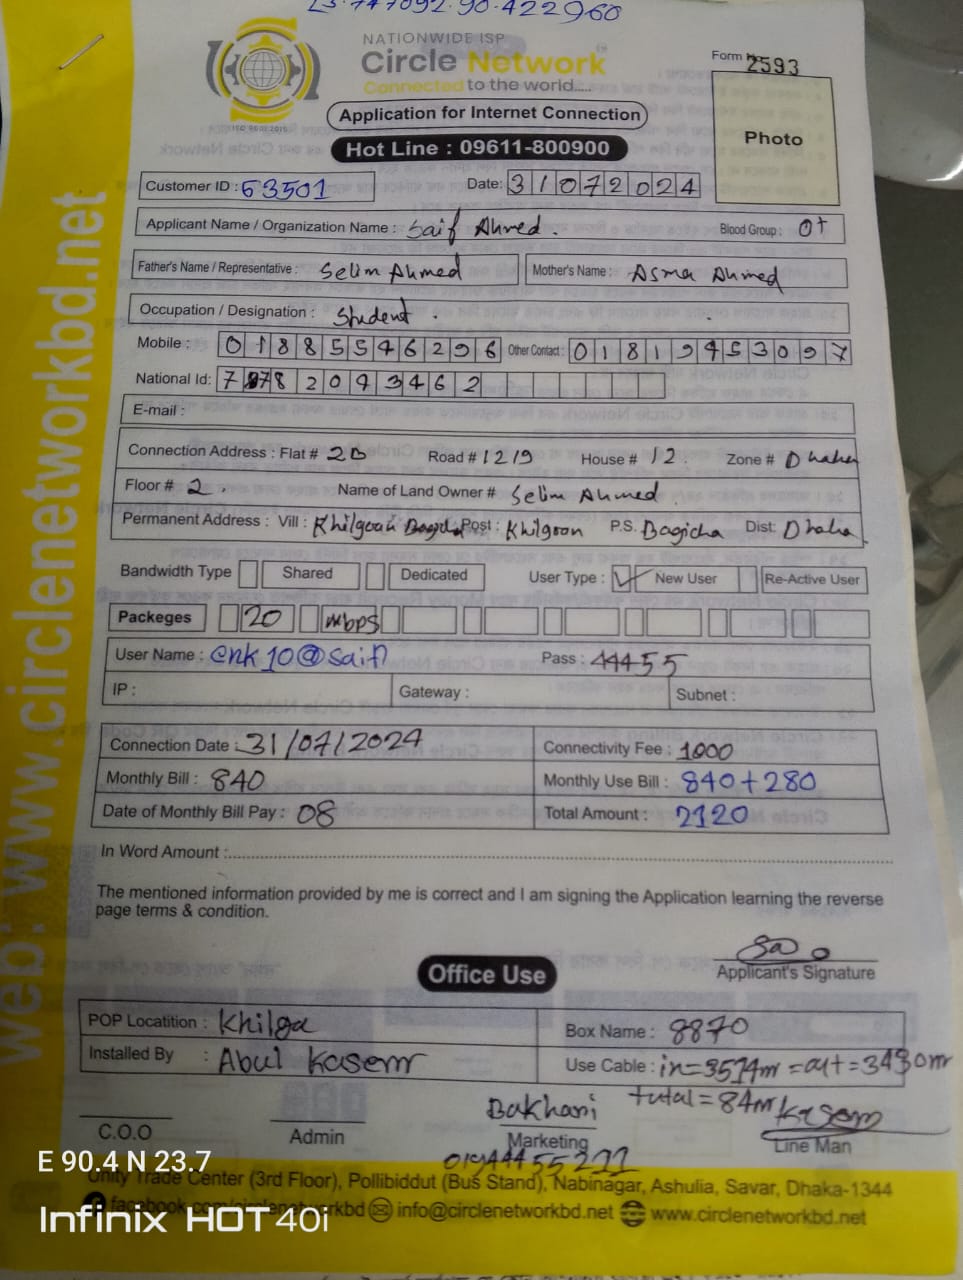 23.747092.90.422960
NATIONWIDE ISP
Circle Network
Connected to the world.....
Form 2593
Application for Internet Connection
Hot Line : 09611-800900
Photo
Customer ID : 63501 Date: 31072024
Applicant Name / Organization Name : Saif Ahmed. Blood Group : O+
Father's Name / Representative : Selim Ahmed Mother's Name : Asma Ahmed
Occupation / Designation : Student.
Mobile : 01885546296 Other Contact : 01819453097
National Id: 7 78 2094 3462
E-mail :
Connection Address : Flat # 2B Road # 1219 House # 12. Zone # Dhaka
Floor # 2. Name of Land Owner # Selim Ahmed.
Permanent Address : Vill : Khilgaon Bagicha Post : Khilgaon P.S. Bagicha Dist: Dhaka.
Bandwidth Type Shared Dedicated User Type : ✓ New User Re-Active User
Packeges 20 mbps
User Name : cnk10@saif Pass : 44455
IP : Gateway : Subnet :
Connection Date : 31/07/2024 Connectivity Fee : 1000
Monthly Bill : 840 Monthly Use Bill : 840+280
Date of Monthly Bill Pay : 08 Total Amount : 2120
In Word Amount :
The mentioned information provided by me is correct and I am signing the Application learning the reverse
page terms & condition.
Applicant's Signature
Office Use
POP Locatition : Khilga Box Name : 8870
Installed By : Abul Kasem Use Cable : in=3514m =out=3430m
total=84m
Bakhani Kasem
C.O.O Admin Marketing Line Man
E 90.4 N 23.7
Unity Trade Center (3rd Floor), Pollibiddut (Bus Stand), Nabinagar, Ashulia, Savar, Dhaka-1344
facebook.com/circlenetworkbd info@circlenetworkbd.net www.circlenetworkbd.net
Infinix HOT 40i
web: www.circlenetworkbd.net